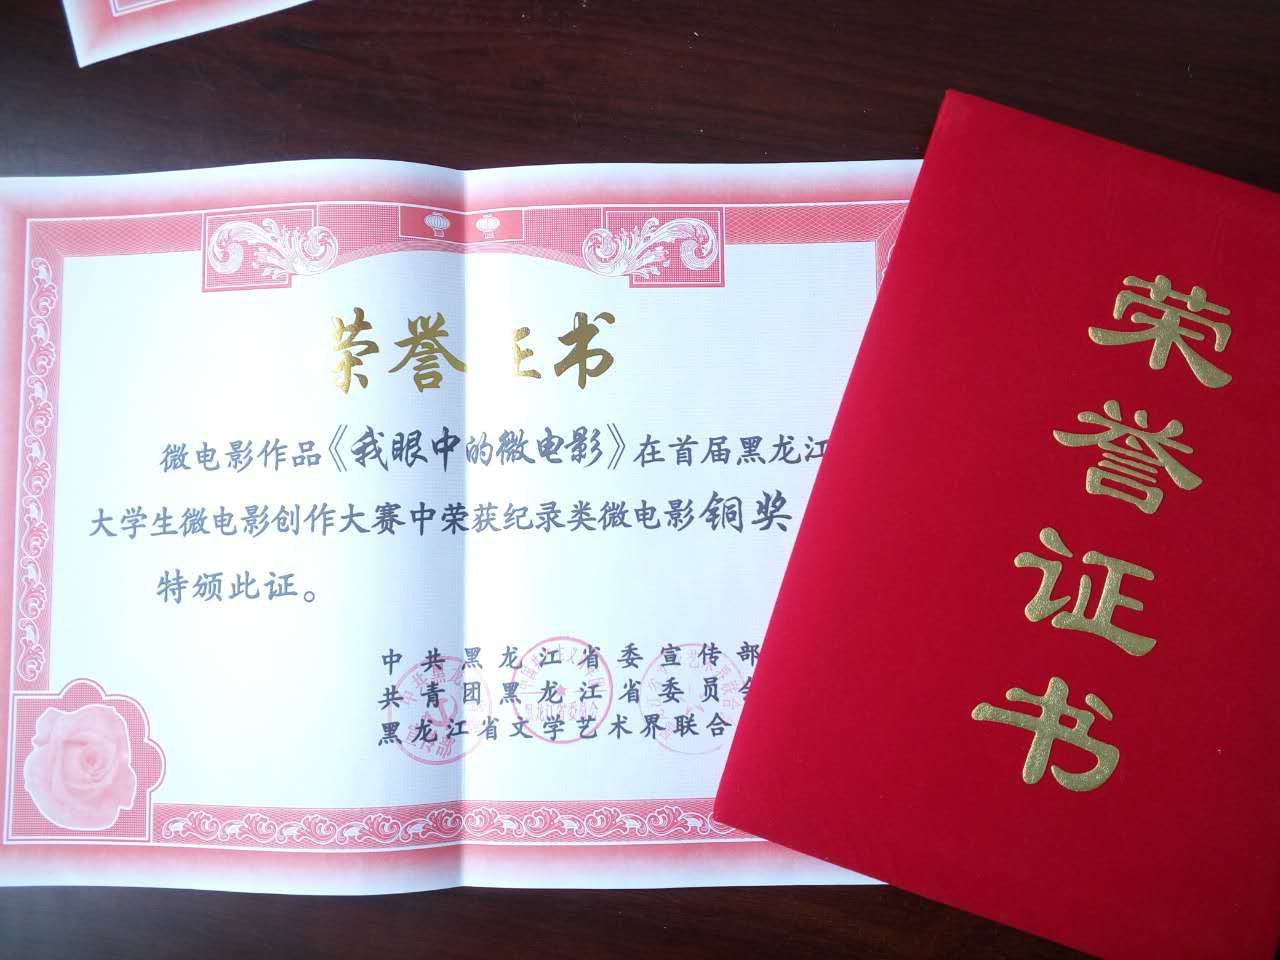 荣誉证书
微电影作品《我眼中的微电影》在首届黑龙江
大学生微电影创作大赛中荣获纪录类微电影铜奖
特颁此证。
中共黑龙江省委宣传部
共青团黑龙江省委员会
黑龙江省文学艺术界联合
荣誉证书